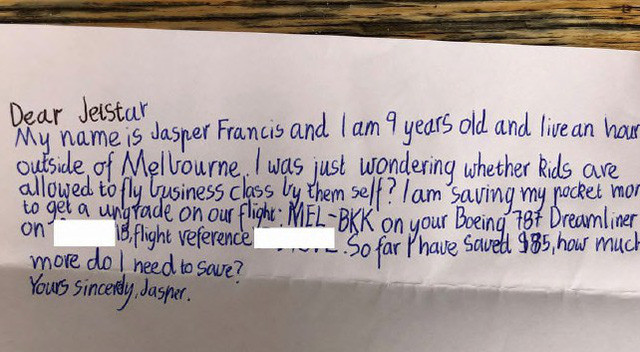 Dear Jetstar
My name is Jasper Francis and I am 9 years old and live an hour
outside of Melbourne. I was just wondering whether kids are
allowed to fly business class by them self? I am saving my pocket mon
to get a upgrade on our flight: MEL-BKK on your Boeing 787 Dreamliner
on 18, flight reference . So far I have saved $ , how much
more do I need to save?
Yours sincerely, Jasper.